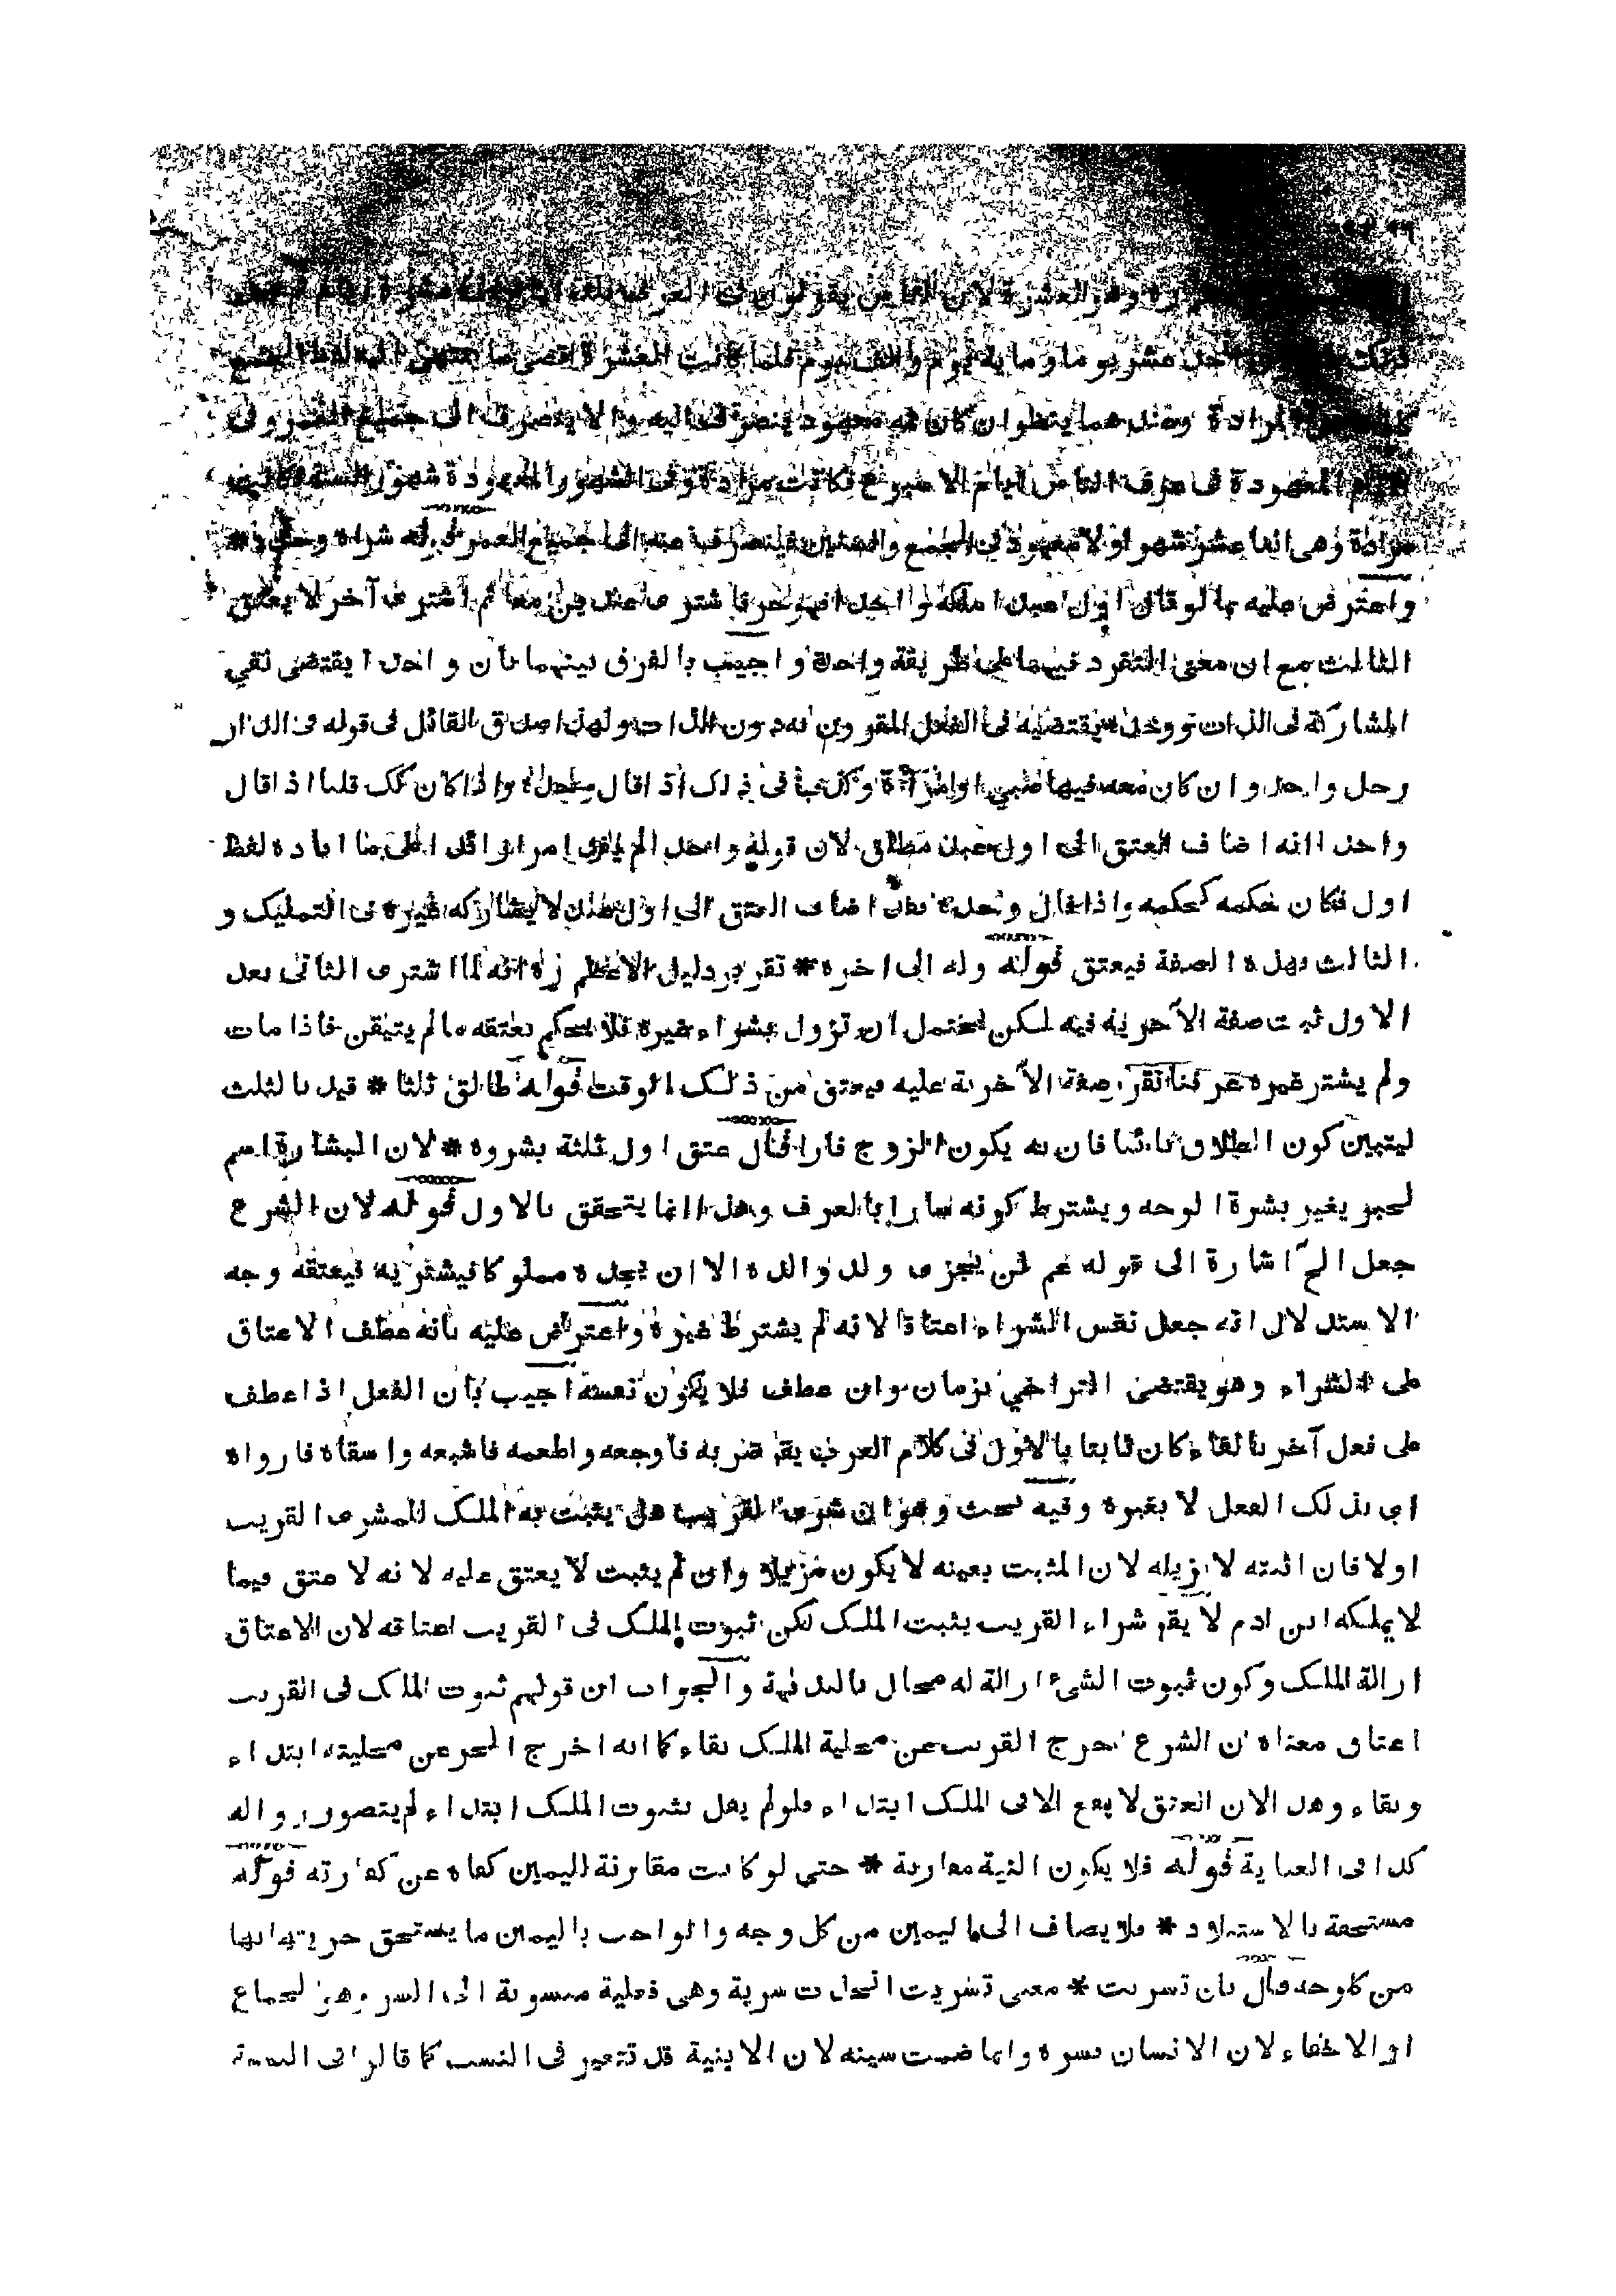 وهو العشرة لان الناس يقولون فى العرف ثلثة ايام
احد عشر يوما وماية يوم والف يوم فلما كانت العشرة اقصى ما ينتهى اليه لفظ الجمع
المرادة وعندهما ينظر ان كان ثمه معهود ينصرف اليه والا ينصرف الى جميع العمر وفى
المعهودة فى عرف الناس ايام الاسبوع فكانت مرادة وفى الشهور المعهودة شهور السنة
مرادة وهى اثنا عشر شهرا ولا معهود فى الجمع والسنين فينصرف الى جميع العمر قوله شراه وحده *
واعترض عليه بما لو قال اول عبد املكه واحدا فهو حر فاشترى عبدين معا ثم اشترى آخر لا يعتق
الثالث مع ان معنى التفرد فيهما على طريقة واحدة واجيب بالفرق بينهما بان واحدا يقتضى نفي
المشاركة فى الذات ووحده يقتضيه فى الفعل المقرون به دون الذات ولهذا صدق القائل فى قوله فى الدار
رجل واحد وان كان معه فيها صبي او امرأة وكذبا فى ذلك اذا قال وحده واذا كان كك قلنا اذا قال
واحدا انه اضاف العتق الى اول عبد مطلق لان قوله واحدا لم يفد امرا زائدا على ما افاده لفظ
اول فكان حكمه كحكمه واذا قال وحده فقد اضاف العتق الى اول عبد لا يشاركه غيره فى التمليك و
الثالث بهذه الصفة فيعتق قوله وله الى اخره * تقرير دليل الاعظم رَه انه لما اشترى الثانى بعد
الاول ثبت صفة الآخرية فيه لكن يحتمل ان تزول بشراء غيره فلا يحكم بعتقه ما لم يتيقن فاذا مات
ولم يشتر غيره عرفنا تقرر صفة الآخرية عليه فيعتق من ذلك الوقت قوله طالق ثلثا * قيد بالثلث
ليتبين كون الطلاق بائنا فان به يكون الزوج فارا قال عتق اول ثلثة بشروه * لان البشارة اسم
لخبر يغير بشرة الوجه ويشترط كونه سارا بالعرف وهذا انما يتحقق بالاول قوله لان الشرع
جعل الخ اشارة الى قوله عم لن يجزى ولد والده الا ان يجده مملوكا فيشتريه فيعتقه وجه
الاستدلال انه جعل نفس الشراء اعتاقا لانه لم يشترط غيره واعترض عليه بانه عطف الاعتاق
على الشراء وهو يقتضى التراخي بزمان وان عطف فلا يكون نفسه اجيب بان الفعل اذا عطف
على فعل آخر بالفاء كان ثابتا بالاول فى كلام العرب يقم ضربه فاوجعه واطعمه فاشبعه واسقاه فارواه
اي بذلك الفعل لا بغيره وفيه بحث وهو ان شرى القريب هل يثبت به الملك للمشرى القريب
اولا فان اثبته لا يزيله لان المثبت بعينه لا يكون مزيلا وان لم يثبت لا يعتق عليه لانه لا عتق فيما
لا يملكه ابن ادم لا يقم شراء القريب يثبت الملك لكن ثبوت الملك فى القريب اعتاقه لان الاعتاق
ازالة الملك وكون ثبوت الشئ ازالة له محال بالبديهة والجواب ان قولهم ثبوت الملك فى القريب
اعتاق معناه ان الشرع اخرج القريب عن محلية الملك بقاء كما انه اخرج الحر عن محليته ابتداء
وبقاء وهذا لان العتق لا يقع الا فى الملك ابتداء فلو لم يقل بثبوت الملك ابتداء لم يتصور زواله
كذا فى العناية قوله فلا يكون النية مقارنة * حتى لو كانت مقارنة لليمين كفاه عن كفارته قوله
مستحقة بالاستيلاد * فلا يضاف الى اليمين من كل وجه والواجب باليمين ما يستحق حريته ابها
من كل وجه قال بان تسريت * معنى تسريت اتخذت سرية وهى فعلية منسوبة الى السر وهو لجماع
او الاخفاء لان الانسان يسره وانما ضمت سينه لان الابنية قد تتغير فى النسب كما قالوا فى النسبة